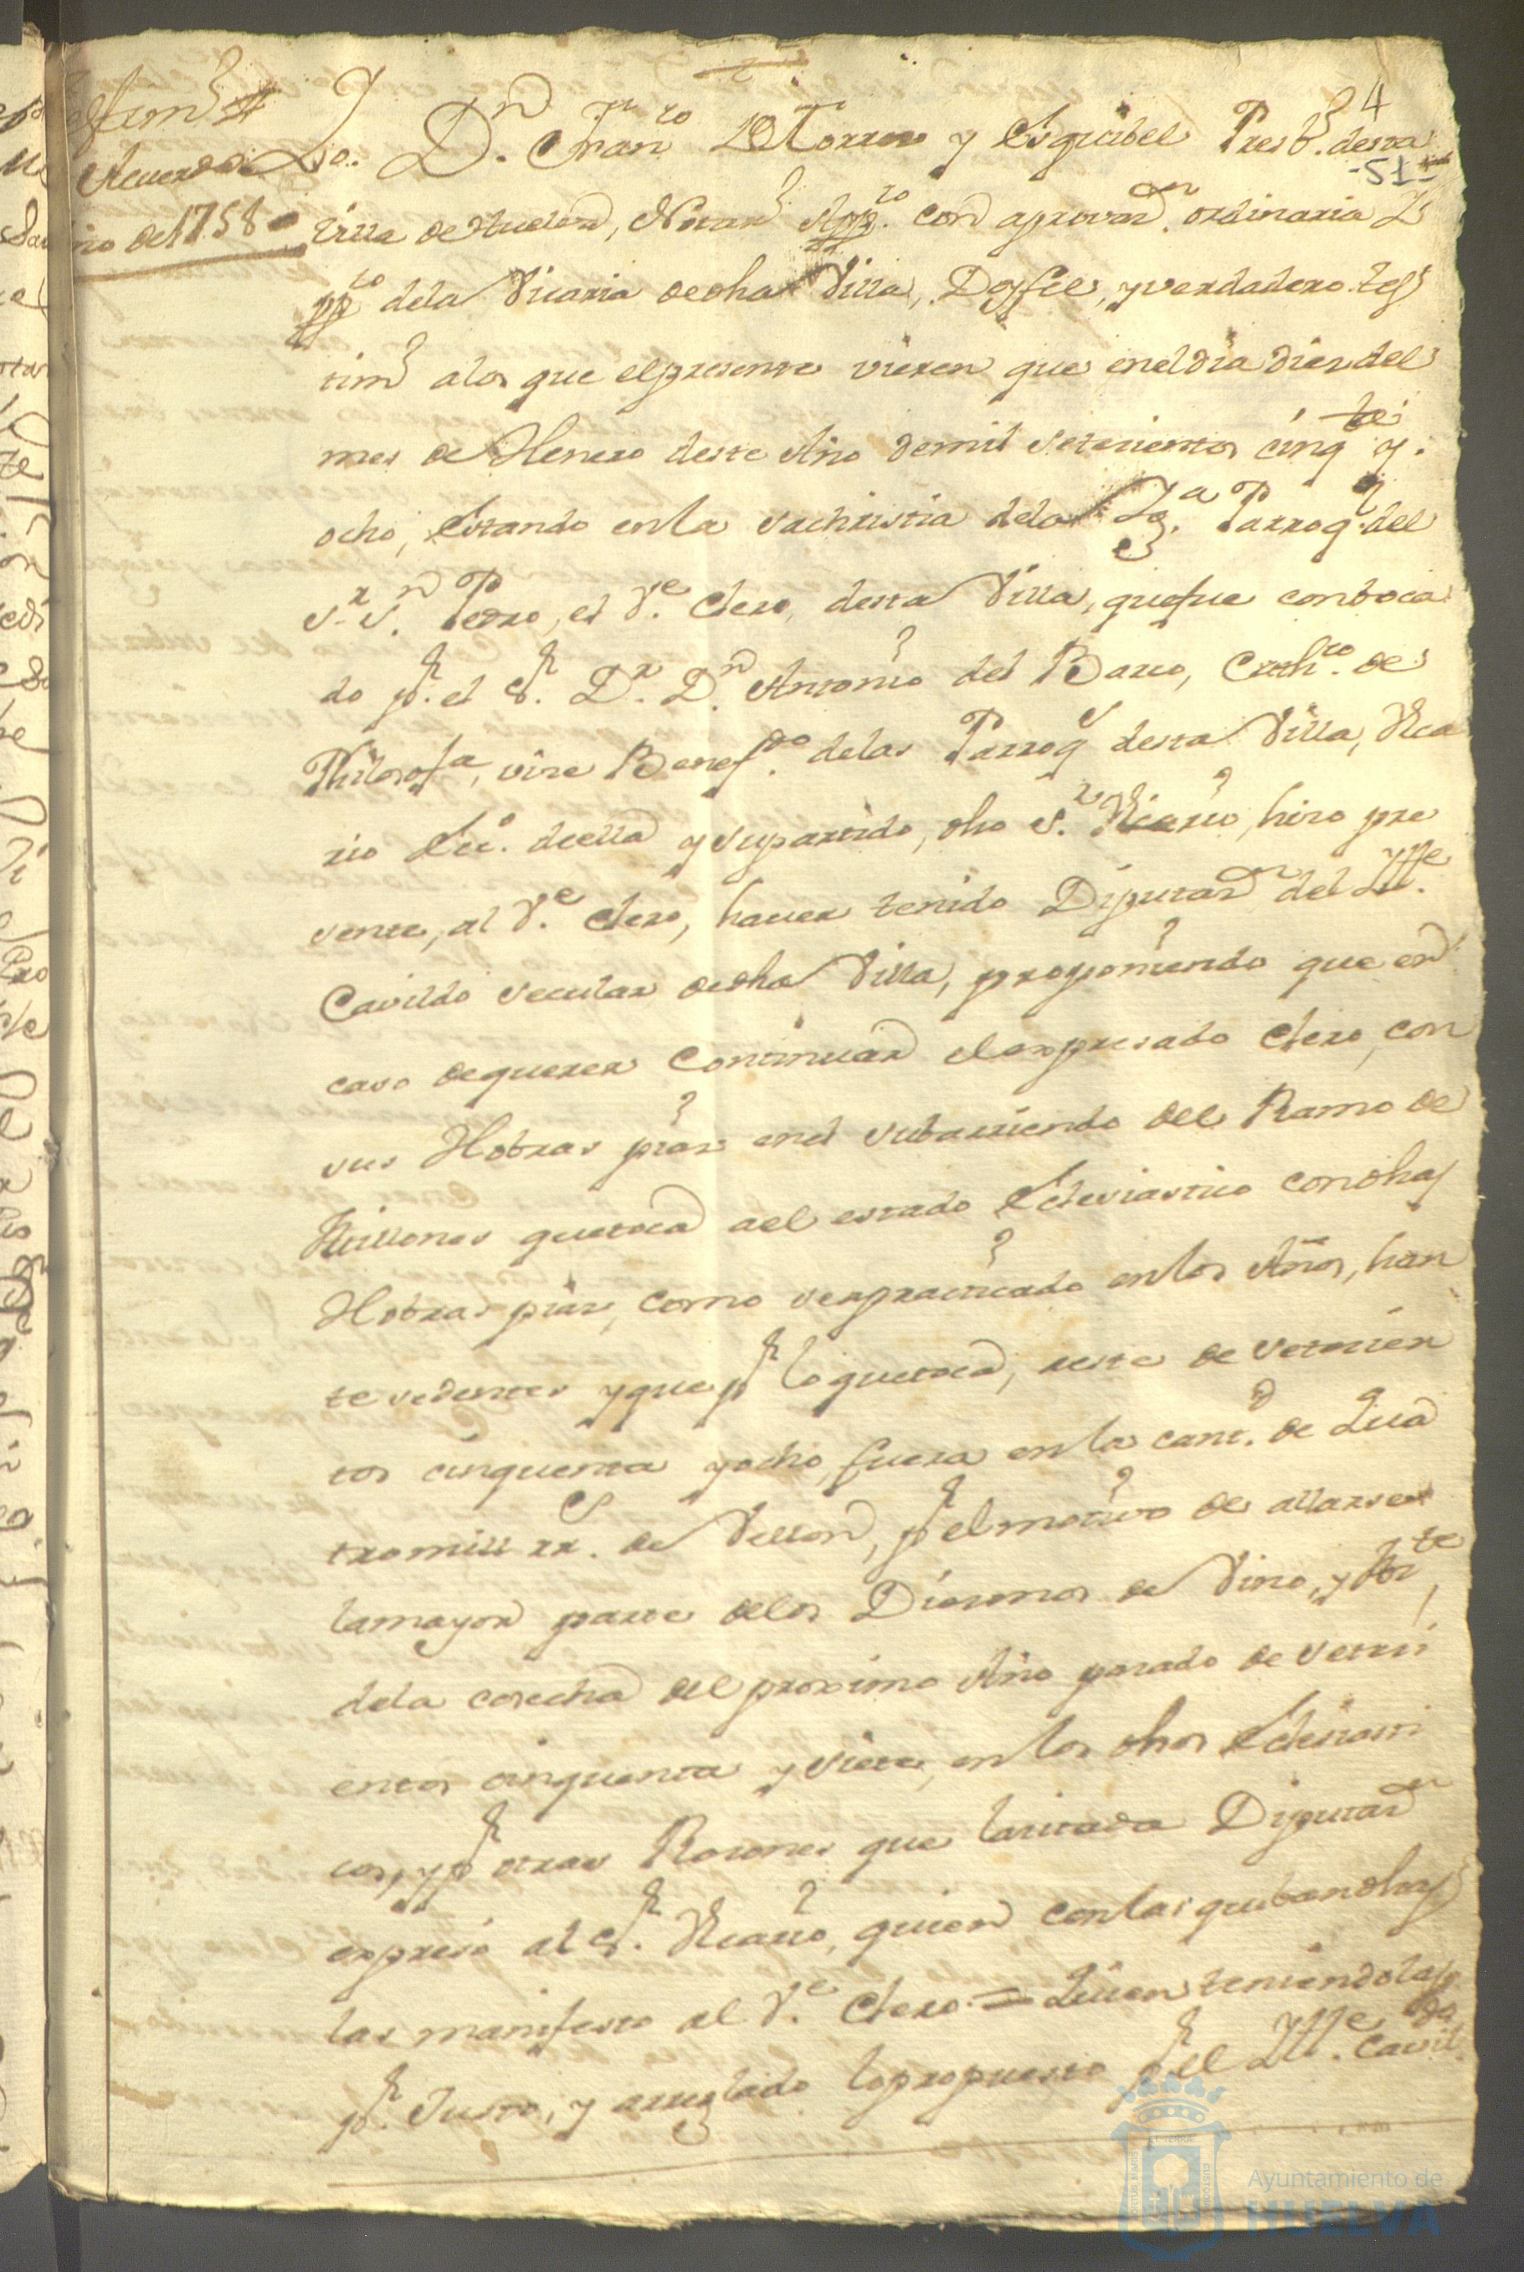 4
-51-
Testim.º #
Acuerdo de
año de 1758
Yo. D.n Fran.co de Torres y Esquibel Presb.º desta
Villa de Huelva, Notar.º App.co con aprovaz.n ordinaria y
pp.co dela Vicaria de dha Villa, Doy fee, y verdadero tes
tim.º a los que el presente vieren que en el dia dies del
mes de Henero deste Año de mil setecientos cinq.ta y
ocho, Estando en la sachristia dela Yg.a Parroq.l del
S.r S.n Pedro, el V.e Clero, desta Villa, que fue conboca
do p.r el S.r D.r D.n Antonio del Barco, Cath.co de
Philosof.a, vice Benef.do delas Parroq.s desta Villa, Vica
rio Ecc.o de ella y su partido, dho S.r Vicario, hizo pre
sente, al V.e Clero, haver tenido Diputaz.n del Ill.e
Cavildo secular de dha Villa, proponiendo que en
caso de querer Continuar el expresado Clero, con
sus Hobras pias en el subarriendo del Ramo de
Millones que toca a el estado Eclesiastico con dhas
Hobras pias, como se ha practicado en los Años, han
tesedentes y que p.r lo que toca, a este de setecien
tos cinquenta y ocho, fuera en la cant.d de Qua
tro mill rr.s de Vellon, p.r el motivo de allarse
la mayor parte de los Diesmos de Vino, y
dela cosecha del proximo Año pasado de seteci
entos cinquenta y siete, en los dhos Eclesiasti
cos, y p.r otras Rasones que la citada Diputaz.n
expresó al S.r Vicario, quien con las que ban dhas
las manifesto al V.e Clero = Quien teniendolas
p.r Justo, y arreglado lo propuesto p.r el Ill.e Cavil.do
Ayuntamiento de
HUELVA